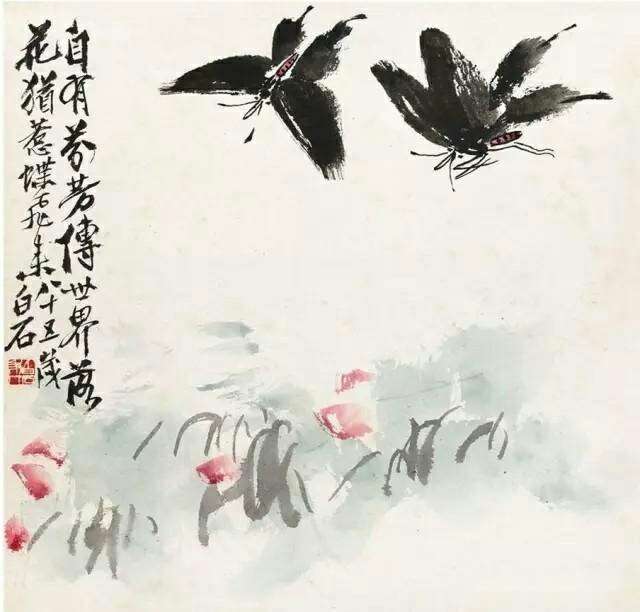 自有芬芳傳世界落
花猶惹蝶飛來八十五歲
白石